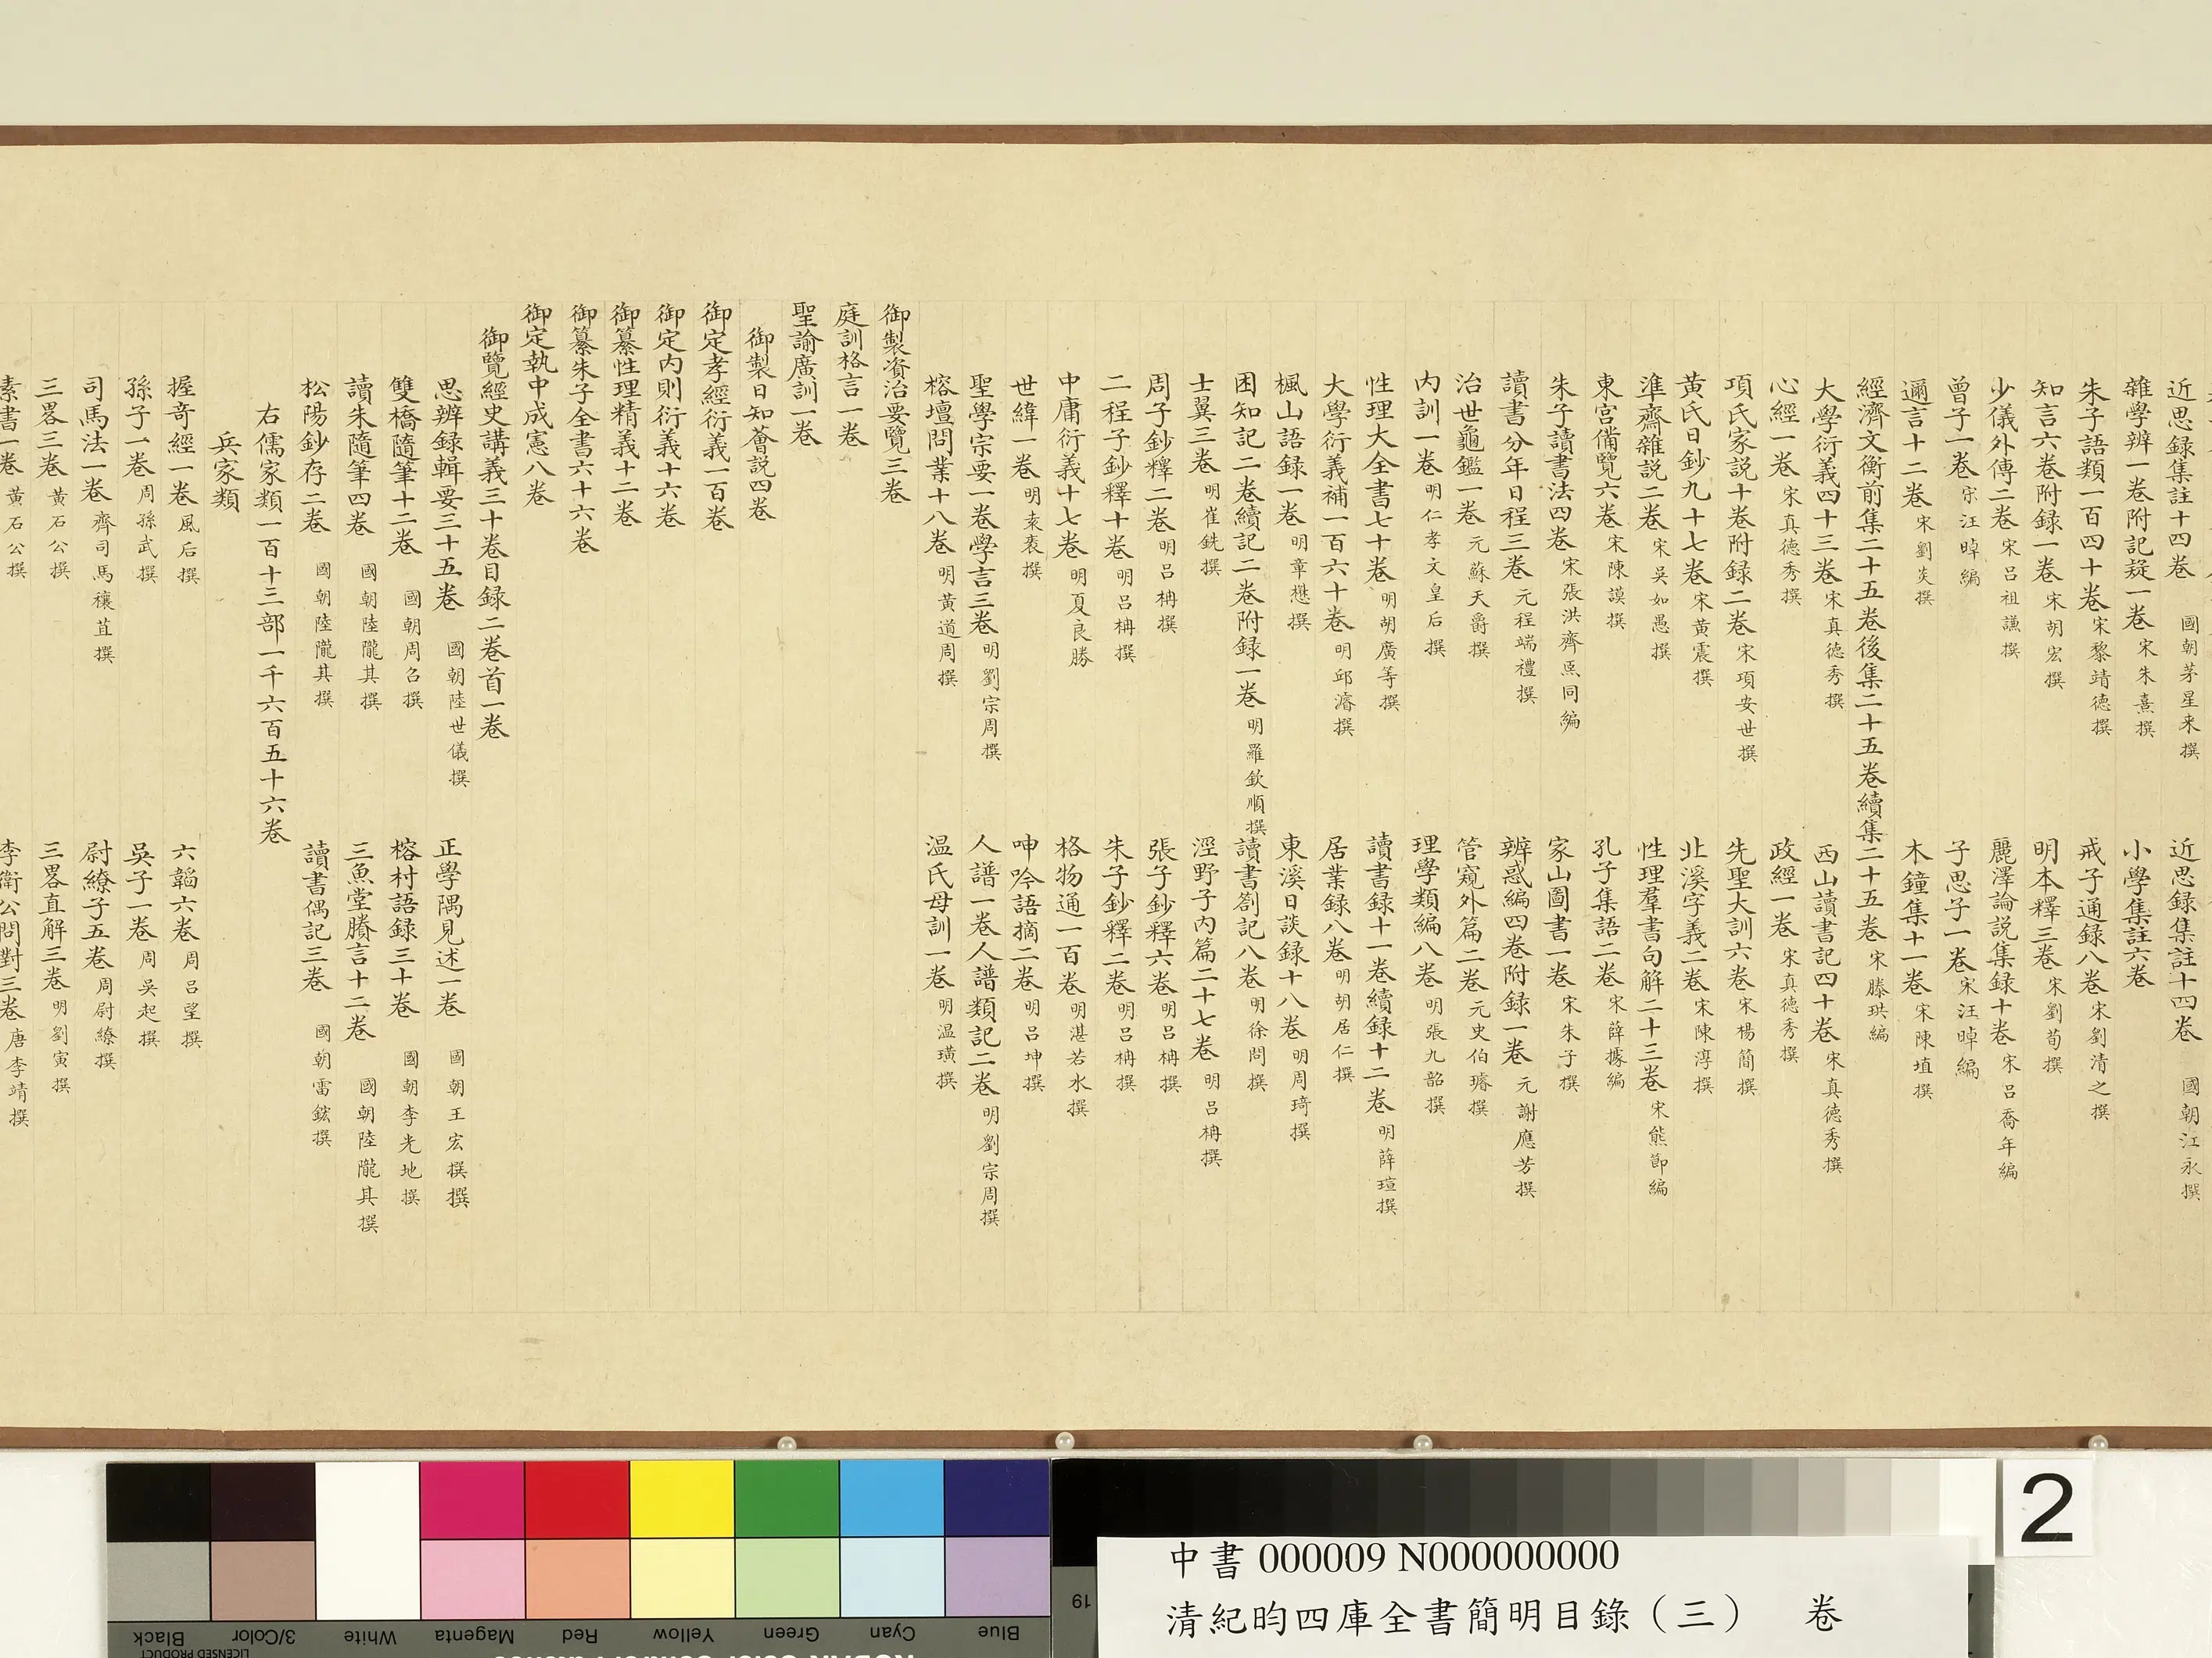 近思録集註十四卷 國朝茅星来撰 近思録集註十四卷 國朝江永撰
雜學辨一卷附記疑一卷 宋朱熹撰 小學集註六卷
朱子語類一百四十卷 宋黎靖德撰 戒子通録八卷 宋劉清之撰
知言六卷附録一卷 宋胡宏撰 明本釋三卷 宋劉荀撰
少儀外傳二卷 宋呂祖謙撰 麗澤論説集録十卷 宋呂喬年編
曾子一卷 宋汪晫編 子思子一卷 宋汪晫編
邇言十二卷 宋劉炎撰 木鐘集十一卷 宋陳埴撰
經濟文衡前集二十五卷後集二十五卷續集二十五卷 宋滕珙編
大學衍義四十三卷 宋真德秀撰 西山讀書記四十卷 宋真德秀撰
心經一卷 宋真德秀撰 政經一卷 宋真德秀撰
項氏家説十卷附録二卷 宋項安世撰 先聖大訓六卷 宋楊簡撰
黃氏日鈔九十七卷 宋黃震撰 北溪字義二卷 宋陳淳撰
準齋雜説二卷 宋吴如愚撰 性理羣書句解二十三卷 宋熊節編
東宮備覽六卷 宋陳謨撰 孔子集語二卷 宋薛據編
朱子讀書法四卷 宋張洪齊𤋮同編 家山圖書一卷 宋朱子撰
讀書分年日程三卷 元程端禮撰 辨惑編四卷附録一卷 元謝應芳撰
治世龜鑑一卷 元蘇天爵撰 管窺外篇二卷 元史伯璿撰
内訓一卷 明仁孝文皇后撰 理學類編八卷 明張九韶撰
性理大全書七十卷 明胡廣等撰 讀書録十一卷續録十二卷 明薛瑄撰
大學衍義補一百六十卷 明邱濬撰 居業録八卷 明胡居仁撰
楓山語録一卷 明章懋撰 東溪日談録十八卷 明周琦撰
困知記二卷續記二卷附録一卷 明羅欽順撰 讀書劄記八卷 明徐問撰
士翼三卷 明崔銑撰 涇野子内篇二十七卷 明呂柟撰
周子鈔釋二卷 明呂柟撰 張子鈔釋六卷 明呂柟撰
二程子鈔釋十卷 明呂柟撰 朱子鈔釋二卷 明呂柟撰
中庸衍義十七卷 明夏良勝 格物通一百卷 明湛若水撰
世緯一卷 明袁袠撰 呻吟語摘二卷 明呂坤撰
聖學宗要一卷學言三卷 明劉宗周撰 人譜一卷人譜類記二卷 明劉宗周撰
榕壇問業十八卷 明黃道周撰 温氏母訓一卷 明温璜撰
御製資治要覽三卷
庭訓格言一卷
聖諭廣訓一卷
御製日知薈説四卷
御定孝經衍義一百卷
御定内則衍義十六卷
御纂性理精義十二卷
御纂朱子全書六十六卷
御定執中成憲八卷
御覽經史講義三十卷目録二卷首一卷
思辨録輯要三十五卷 國朝陸世儀撰 正學隅見述一卷 國朝王宏撰撰
雙橋隨筆十二卷 國朝周召撰 榕村語録三十卷 國朝李光地撰
讀朱隨筆四卷 國朝陸隴其撰 三魚堂賸言十二卷 國朝陸隴其撰
松陽鈔存二卷 國朝陸隴其撰 讀書偶記三卷 國朝雷鋐撰
右儒家類一百十三部一千六百五十六卷
兵家類
握奇經一卷 風后撰 六韜六卷 周呂望撰
孫子一卷 周孫武撰 吳子一卷 周吳起撰
司馬法一卷 齊司馬穰苴撰 尉繚子五卷 周尉繚撰
三畧三卷 黃石公撰 三畧直解三卷 明劉寅撰
素書一卷 黃石公撰 李衛公問對三卷 唐李靖撰
Black 3/Color White Magenta Red Yellow Green Cyan Blue
LICENSED PRODUCT
19
2
中書 000009 N000000000
清紀昀四庫全書簡明目錄（三） 卷